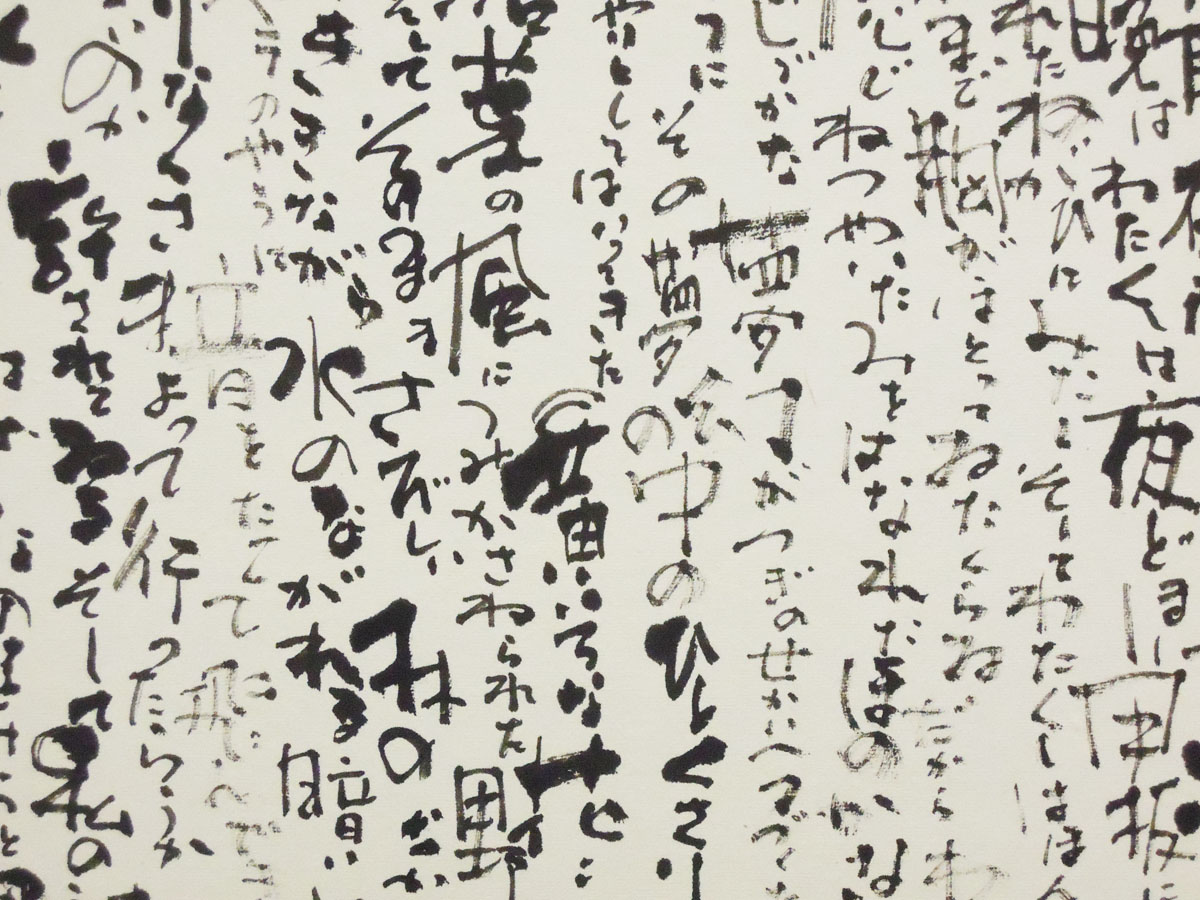 晩はわたくしは夜どほし甲板に
れたねがひにみたしそしてわたくしはほん
まで胸がほとつてゐたくらゐだからわ
じねつやいたみをはなれたほのかな
しづかな夢幻がつぎのせかいへつづき
つにその夢の中のひとくさり
かりとしてはいつてきた黄いろな花こ
落葉の風につみかさねられた野
そしてそのままさびしい林のなか
ききながら水のながれる暗い
ラのやうに音をたてて飛んできた
なくさまよつて行つたらうか
のか許されてゐるそして私の